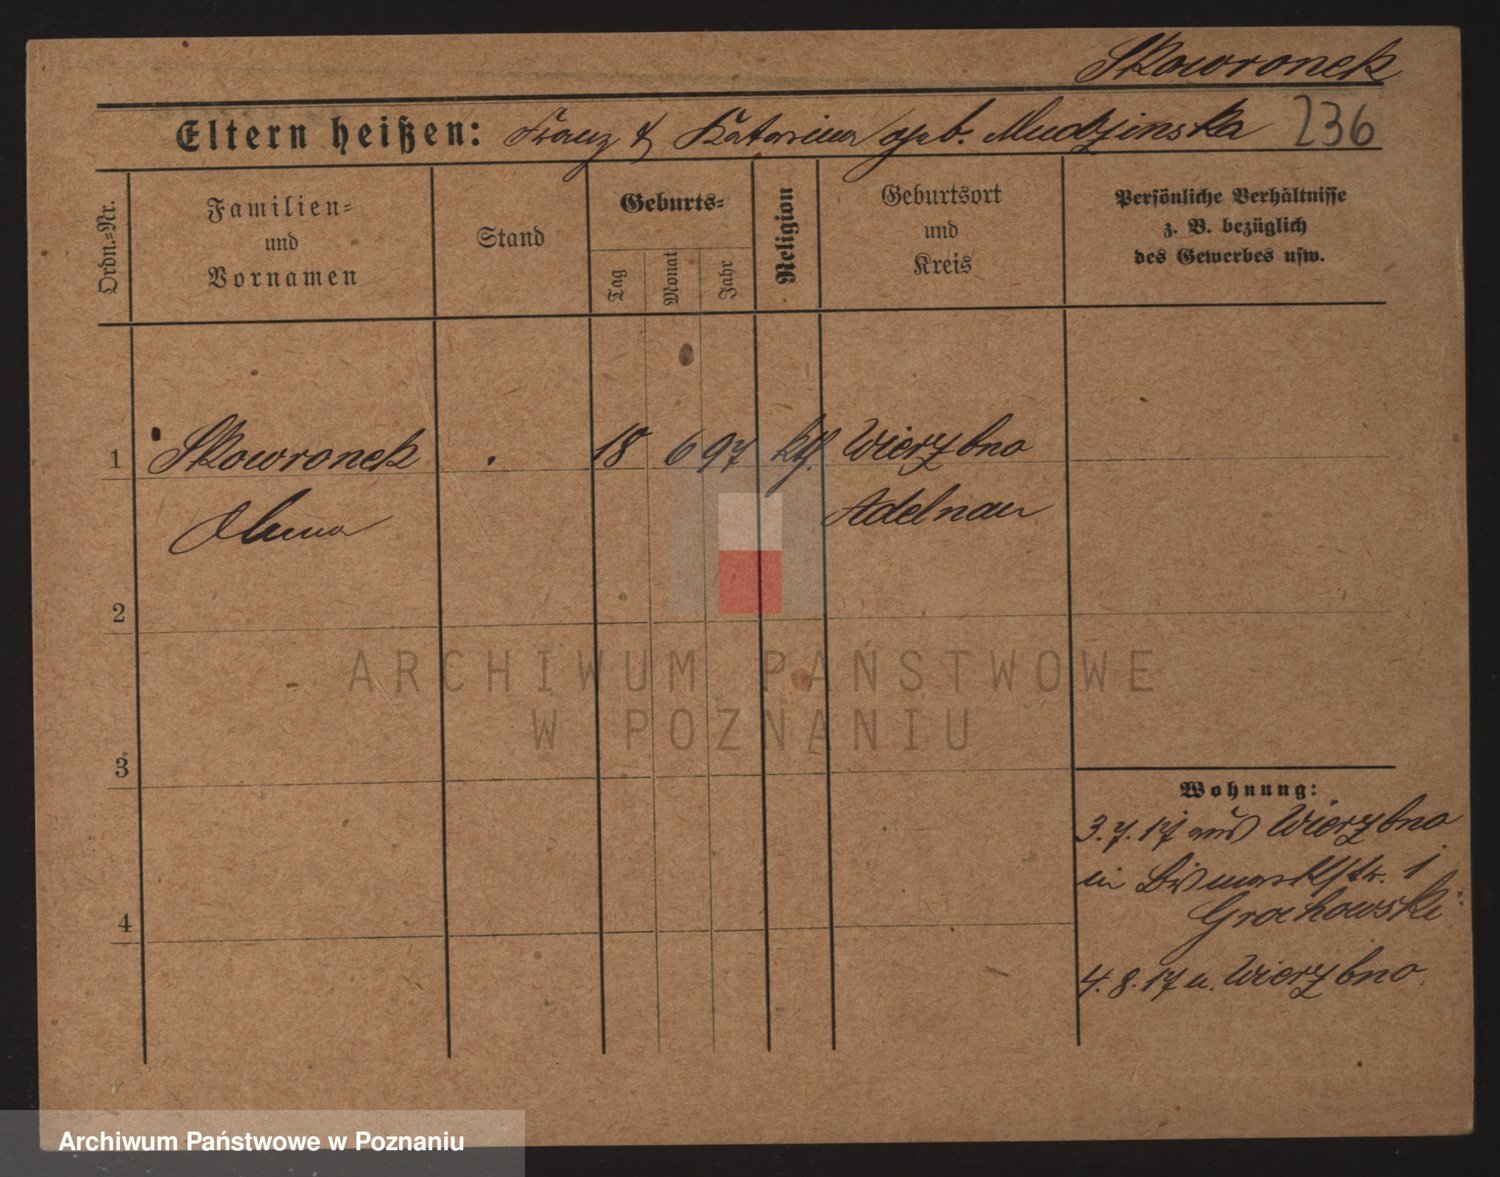 Skowronek
Eltern heißen: Franz & Katarina geb. Mudzinska 236
Ordn.=Nr.
Familien=
und
Vornamen
Stand
Geburts=
Tag
Monat
Jahr
Religion
Geburtsort
und
Kreis
Persönliche Verhältnisse
z. B. bezüglich
des Gewerbes usw.
1 Skowronek 18 6 97 ktl. Wierzbno
Adelnau
2
3
4
Wohnung:
3.7.17 aus Wierzbno
in Bismarckstr. 1
Grochowski
4.8.17 n. Wierzbno
ARCHIWUM PAŃSTWOWE
W POZNANIU
Archiwum Państwowe w Poznaniu